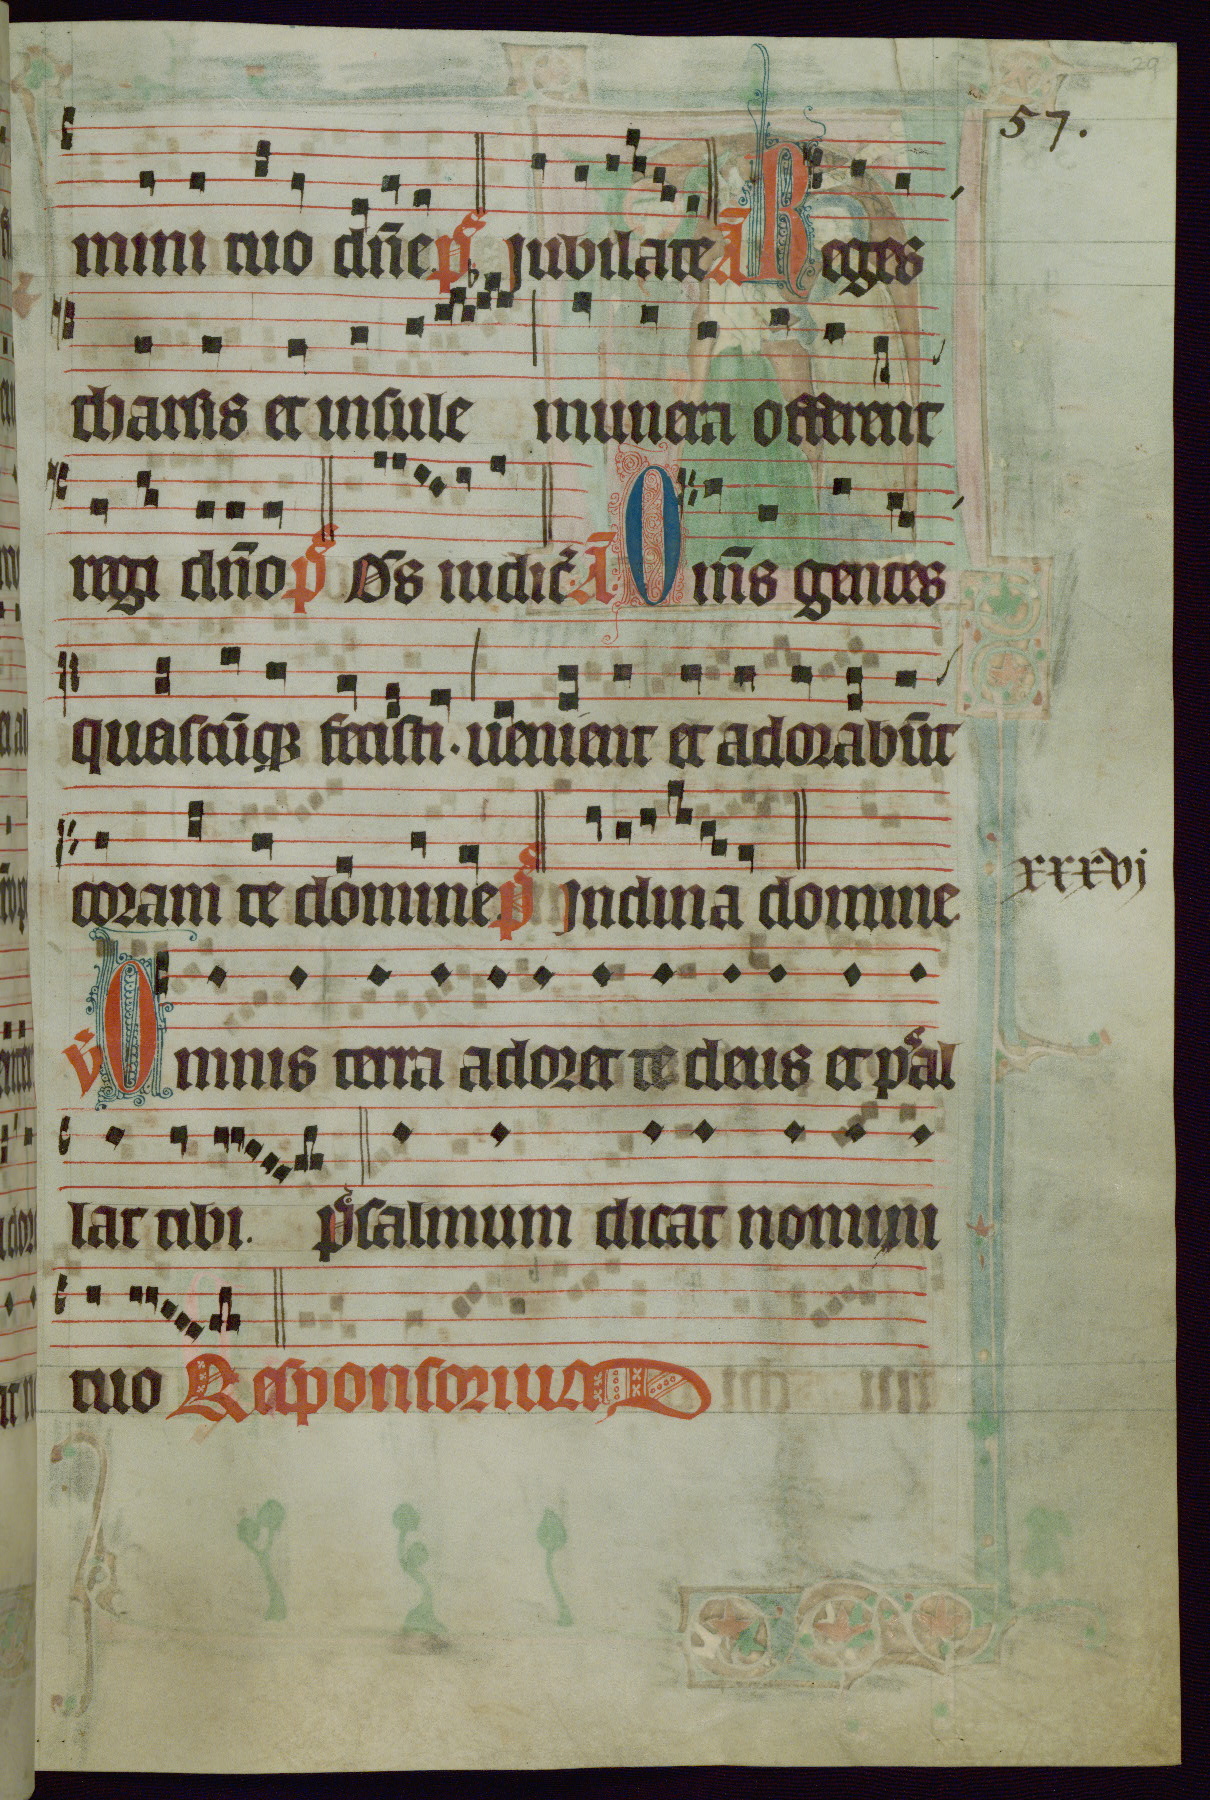 29
57.
mini tuo dn̄e ps Jubilate a Reges
tharsis et insule munera offerent
regi dn̄o ps D̄s iudic̄ a Om̄s gentes
quascūq̨ fecisti. uenient et adorabūt
coram te domine ps Jnclina domine
xxxvj
v̄ Omnis terra adoret te deus et psal
lat tibi. psalmum dicat nomini
tuo Responsorium